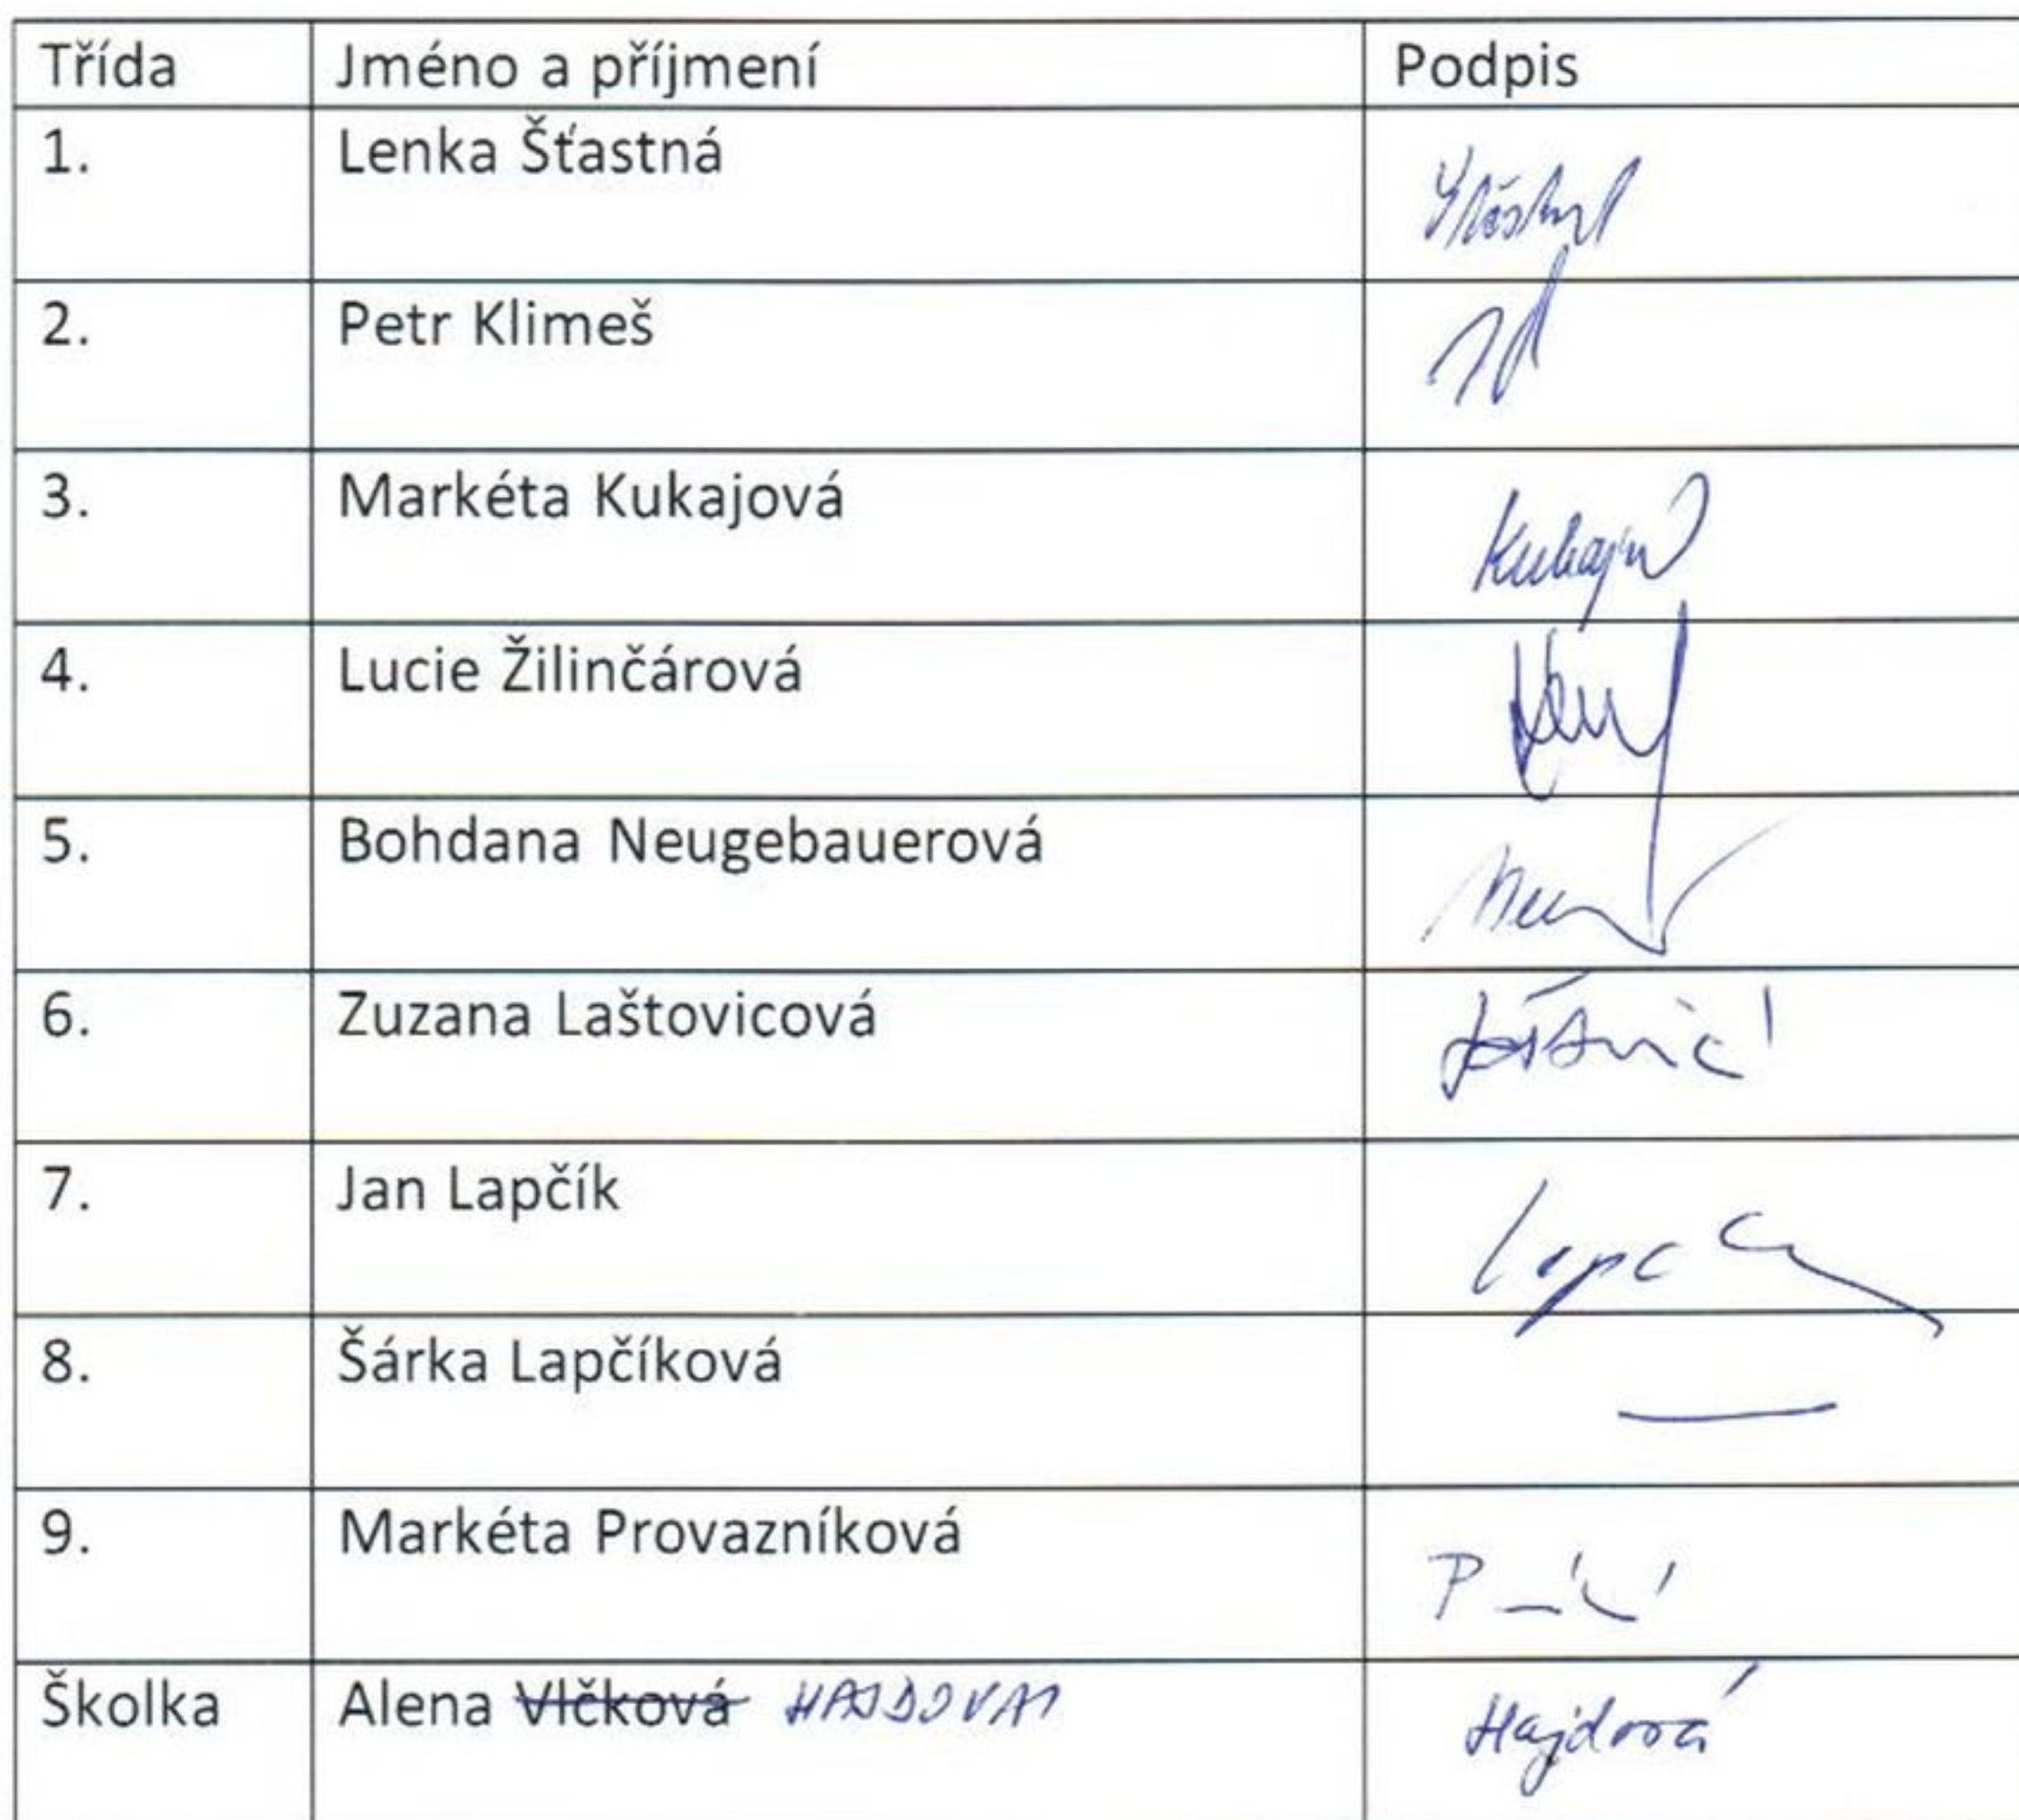 Třída Jméno a příjmení Podpis
1. Lenka Šťastná
2. Petr Klimeš
3. Markéta Kukajová
4. Lucie Žilinčárová
5. Bohdana Neugebauerová
6. Zuzana Laštovicová
7. Jan Lapčík
8. Šárka Lapčíková
9. Markéta Provazníková
Školka Alena Vlčková HAJDOVÁ Hajdová